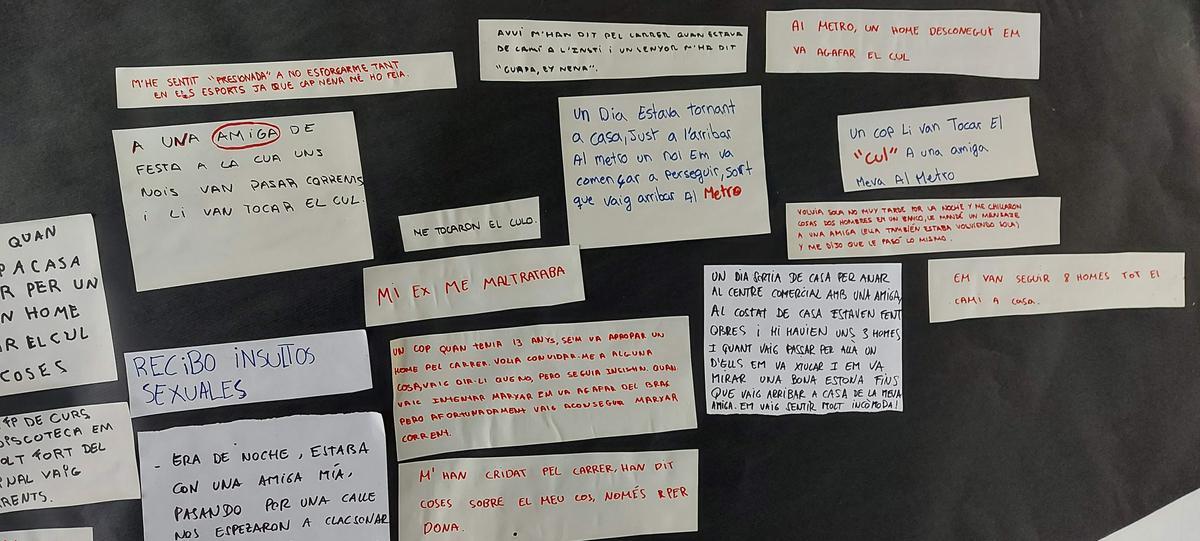 M'HE SENTIT "PRESIONADA" A NO ESFORÇARME TANT
EN ELS ESPORTS JA QUE CAP NENA ME HO FEIA.
AVUI M'HAN DIT PEL CARRER QUAN ESTAVA
DE CAMÍ A L'INSTI I UN SENYOR M'HA DIT
"GUAPA, EY NENA".
Al METRO, UN HOME DESCONEGUT EM
VA AGAFAR EL CUL
A UNA AMIGA DE
FESTA A LA CUA UNS
NOIS VAN PASAR CORRENTS
i LI VAN TOCAR EL CUL.
Un Dia Estava tornant
a casa, Just a l'arribar
Al metro un noi Em va
començar a perseguir, sort
que vaig arribar Al Metro
Un cop Li van Tocar El
"cul" A una amiga
Meva Al Metro
ME TOCARON EL CULO.
VOLVIA SOLA NO MUY TARDE POR LA NOCHE Y ME CHILLARON
COSAS DOS HOMBRES EN UN BANCO, LE MANDÉ UN MENSAJE
A UNA AMIGA (ELLA TAMBIÉN ESTABA VOLVIENDO SOLA)
Y ME DIJO QUE LE PASÓ LO MISMO.
QUAN
A CASA
R PER UN
N HOME
R EL CUL
COSES
MI EX ME MALTRATABA
UN DIA SORTIA DE CASA PER ANAR
AL CENTRE COMERCIAL AMB UNA AMIGA,
AL COSTAT DE CASA ESTAVEN FENT
OBRES i HI HAVIEN UNS 3 HOMES
I QUANT VAIG PASSAR PER ALLÀ UN
D'ELLS EM VA XIULAR I EM VA
MIRAR UNA BONA ESTONA FINS
QUE VAIG ARRIBAR A CASA DE LA MEVA
AMIGA. EM VAIG SENTIR MOLT INCÒMODA!
EM VAN SEGUIR 8 HOMES TOT El
CAMI A CASA.
RECIBO iNSULTOS
SEXUALES
UN COP QUAN TENIA 13 ANYS, SE'M VA APROPAR UN
HOME PEL CARRER. VOLIA CONVIDAR-ME A ALGUNA
COSA, VAIG DIR-LI QUE NO, PERO SEGUIA INSISTIN. QUAN
VAIG INTENTAR MARXAR EM VA AGAFAR DEL BRAÇ
PERO AFORTUNADAMENT VAIG ACONSEGUIR MARXAR
CORRENT.
DE CURS
DISCOTECA EM
OLT FORT DEL
NAL VAIG
RENTS.
- ERA DE NOCHE, ESTABA
CON UNA AMIGA MÍA,
PASANDO POR UNA CALLE
NOS ESPEZARON A CLACSONAR
M'HAN CRIDAT PEL CARRER, HAN DIT
COSES SOBRE EL MEU COS, NOMÉS PER
DONA.